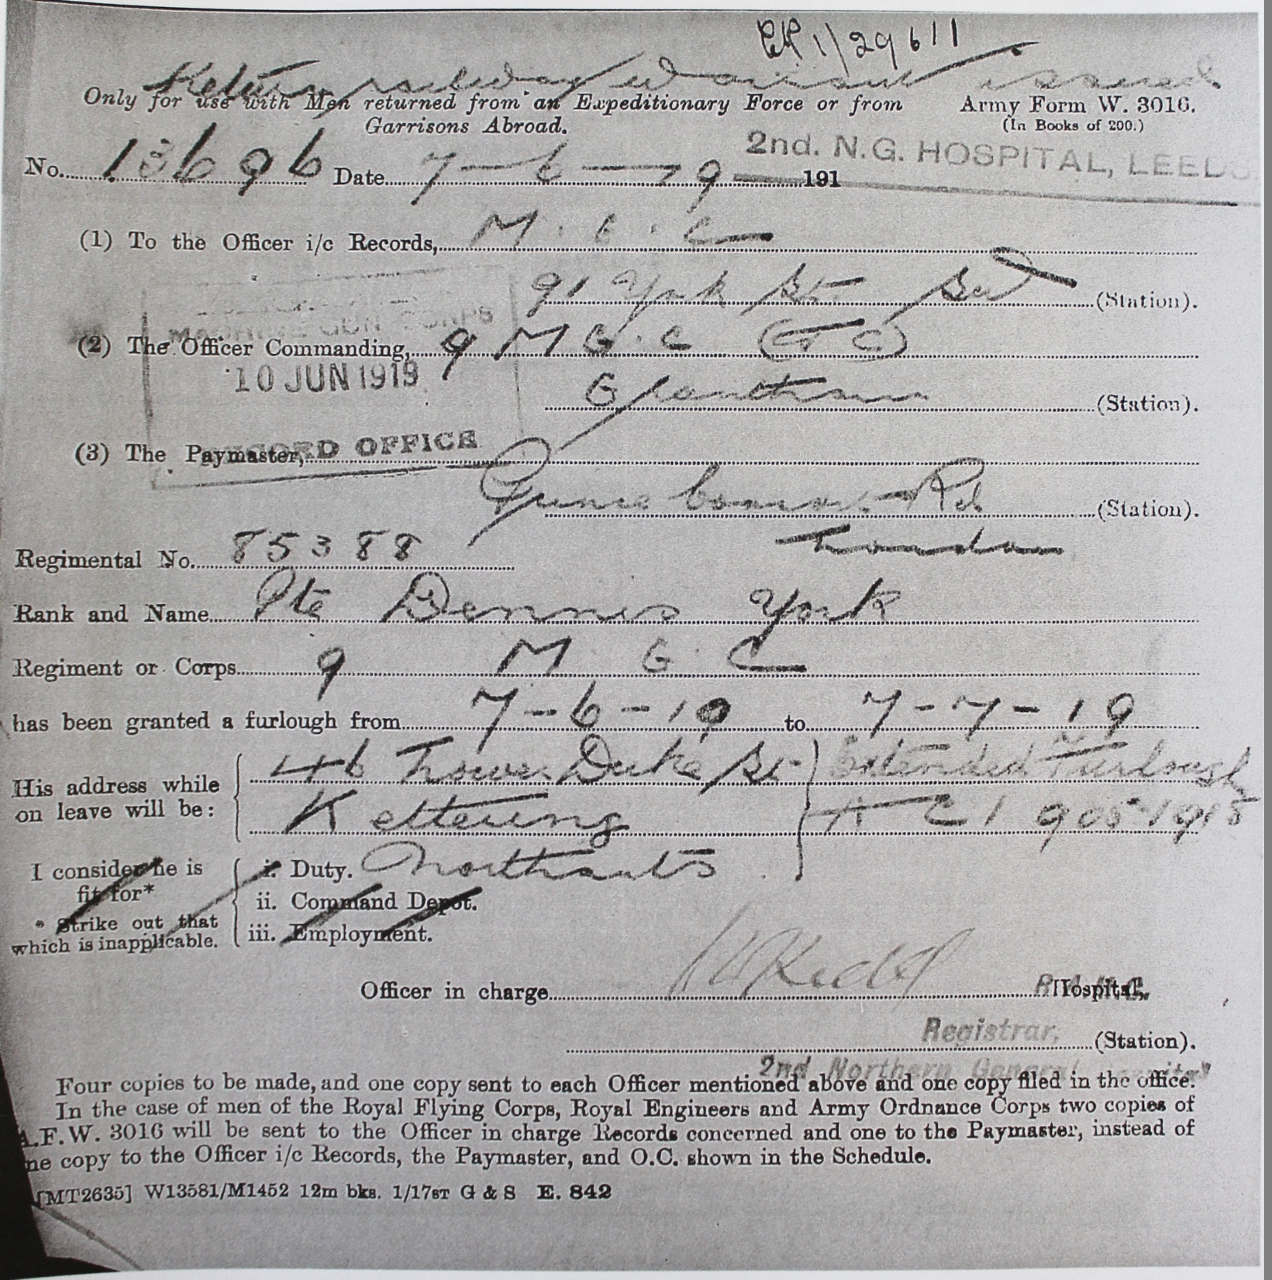 ER 1/29611
Return railway warrant issued
Only for use with Men returned from an Expeditionary Force or from Army Form W. 3016.
Garrisons Abroad. (In Books of 200.)
2nd. N.G. HOSPITAL, LEEDS
No. 13696 Date 7-6-19 191
(1) To the Officer i/c Records, M.G.C
91 York St. SW (Station).
MACHINE GUN CORPS
(2) The Officer Commanding, 9 M G. C
10 JUN 1919
Grantham (Station).
RECORD OFFICE
(3) The Paymaster,
Prince Consort Rd (Station).
London
Regimental No. 85388
Rank and Name Pte Dennis York
Regiment or Corps 9 M G. C
has been granted a furlough from 7-6-19 to 7-7-19
His address while on leave will be: 46 Lower Duke St Extended Furlough
Kettering A C I 905-1918
Northants
I consider he is fit for* i. Duty.
ii. Command Depot.
* Strike out that which is inapplicable. iii. Employment.
Officer in charge Hospital,
Registrar, (Station).
2nd Northern General Hospital
Four copies to be made, and one copy sent to each Officer mentioned above and one copy filed in the office.
In the case of men of the Royal Flying Corps, Royal Engineers and Army Ordnance Corps two copies of
A.F.W. 3016 will be sent to the Officer in charge Records concerned and one to the Paymaster, instead of
ne copy to the Officer i/c Records, the Paymaster, and O.C. shown in the Schedule.
[MT2635] W13581/M1452 12m bks. 1/17ST G & S E. 842